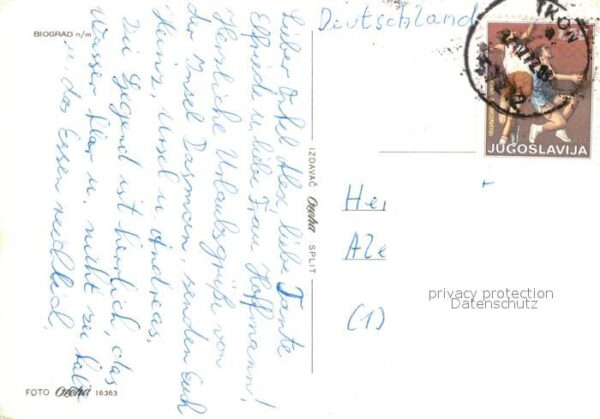 BIOGRAD n/m
Lieber Onkel Alex, liebe Tante
Elfriede u. liebe Frau Hoffmann!
Herzliche Urlaubsgrüße von
der Insel Pasman, senden Euch
Heinz, Ursel u. Andreas.
Die Gegend ist herrlich, das
Wasser klar u. nicht zu kalt
u. das Essen reichlich.
FOTO Ozeha 16363
IZDAVAČ Ozeha SPLIT
Deutschland
TKON
JUGOSLAVIJA
Her
Ale
(1)
privacy protection
Datenschutz